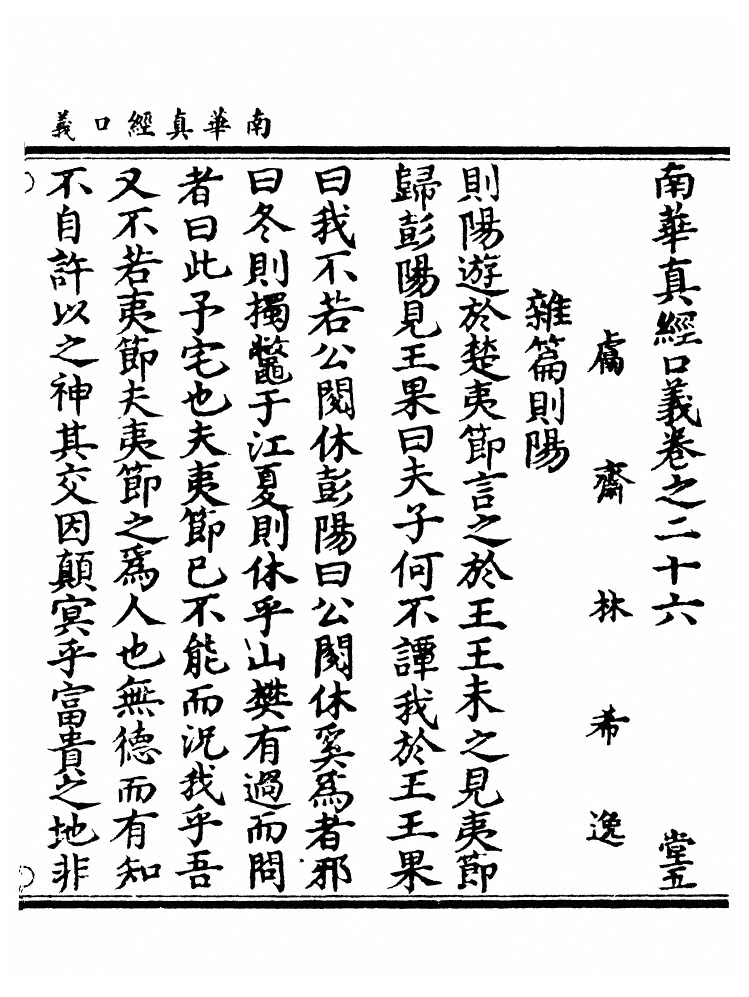 南華真經口義
南華真經口義卷之二十六 堂五
鬳齋林希逸
雜篇則陽
則陽遊於楚夷節言之於王王未之見夷節
歸彭陽見王果曰夫子何不譚我於王王果
曰我不若公閱休彭陽曰公閱休奚爲者邪
曰冬則擉鼈于江夏則休乎山樊有過而問
者曰此予宅也夫夷節已不能而況我乎吾
又不若夷節夫夷節之爲人也無德而有知
不自許以之神其交因顛冥乎富貴之地非